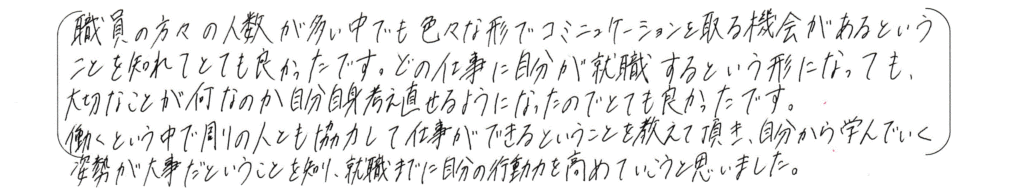 職員の方々の人数が多い中でも色々な形でコミニュケーションを取る機会があるという
ことを知れてとても良かったです。どの仕事に自分が就職するという形になっても、
大切なことが何なのか自分自身考え直せるようになったのでとても良かったです。
働くという中で周りの人とも協力して仕事ができるということを教えて頂き、自分から学んでいく
姿勢が大事だということを知り、就職までに自分の行動力を高めていこうと思いました。